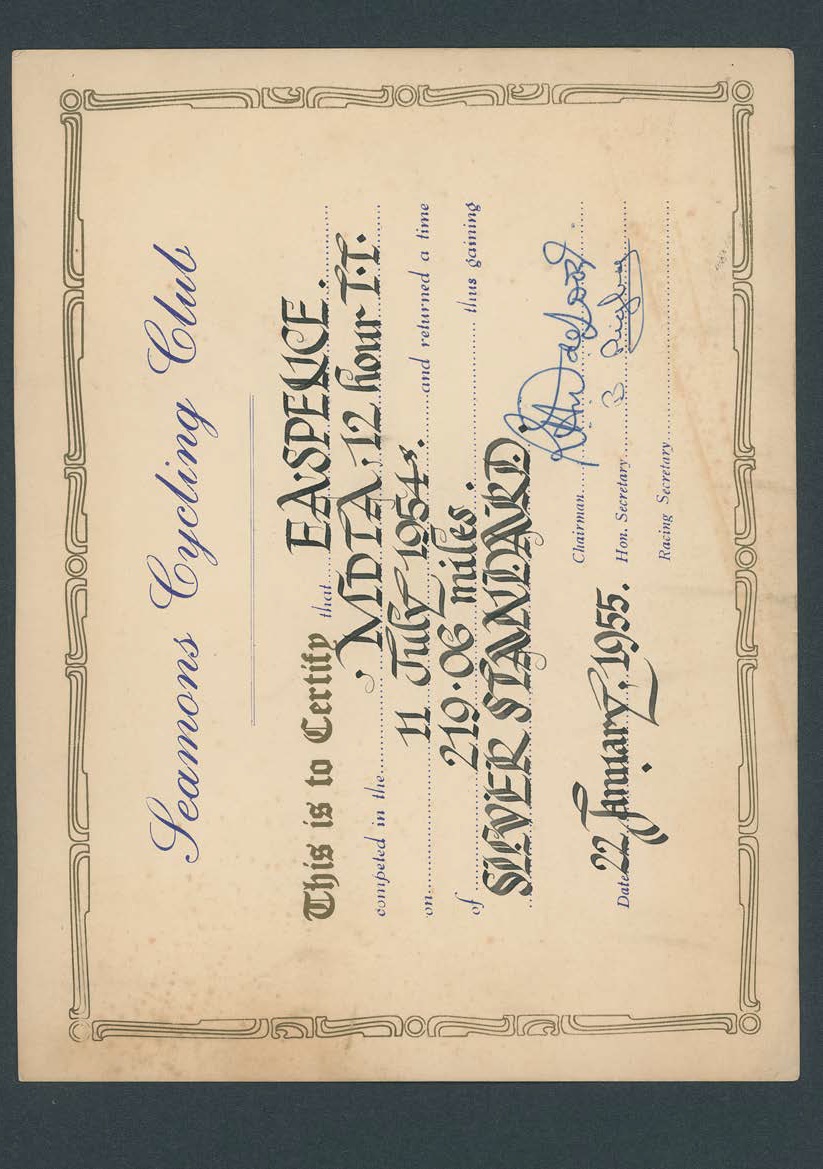 Seamons Cycling Club
This is to Certify that E.A.SPENCE.
competed in the MDTTA.12 hour T.T.
on 11 July 1954s. and returned a time
of 219.06 miles. thus gaining
SILVER STANDARD.
Chairman
Date 22 January. 1955. Hon. Secretary B
Racing Secretary